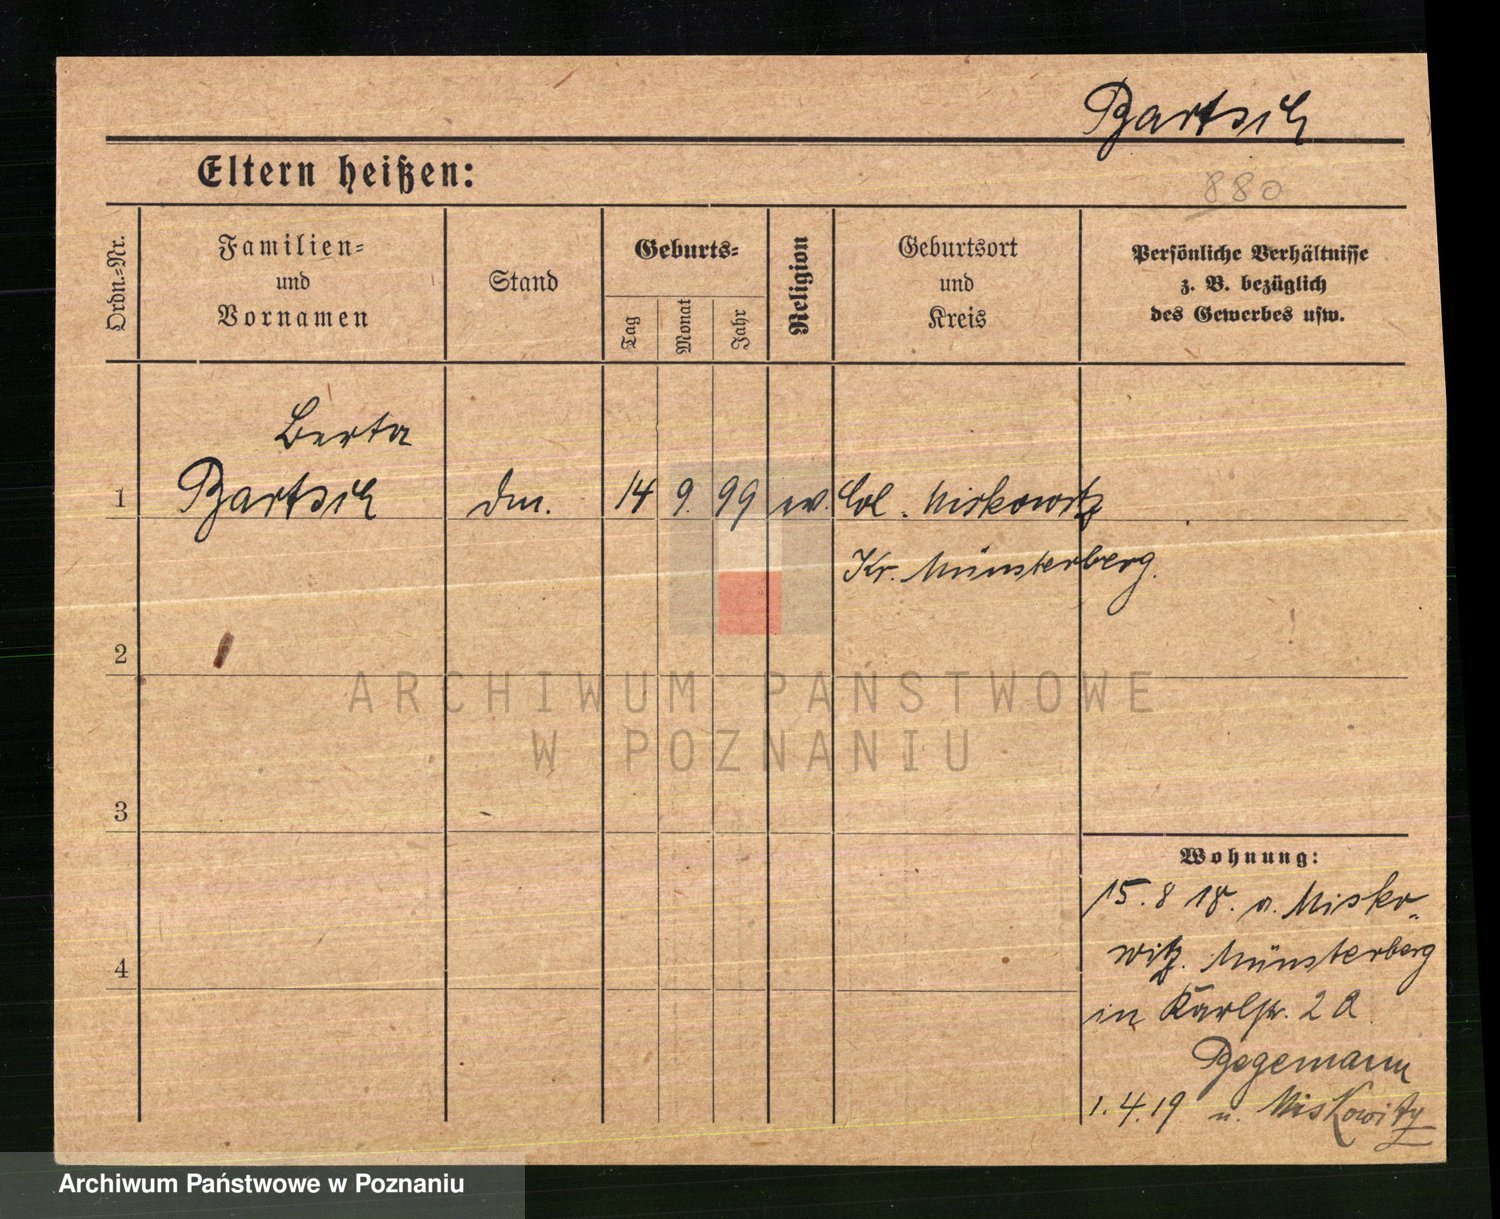 Bartsch
Eltern heißen:
880
Ordn.-Nr.
Familien-
und
Vornamen
Stand
Geburts-
Tag
Monat
Jahr
Religion
Geburtsort
und
Kreis
Persönliche Verhältnisse
z. B. bezüglich
des Gewerbes usw.
Berta
1 Bartsch 14 9. 99 ev. Col. Niskowitz
Kr. Münsterberg.
2
ARCHIWUM PAŃSTWOWE
W POZNANIU
3
Wohnung:
15. 8 18. a. Misko-
witz. Münsterberg
4
in Karlstr. 2 a
Begemann
1. 4. 19 n. Miskowitz
Archiwum Państwowe w Poznaniu